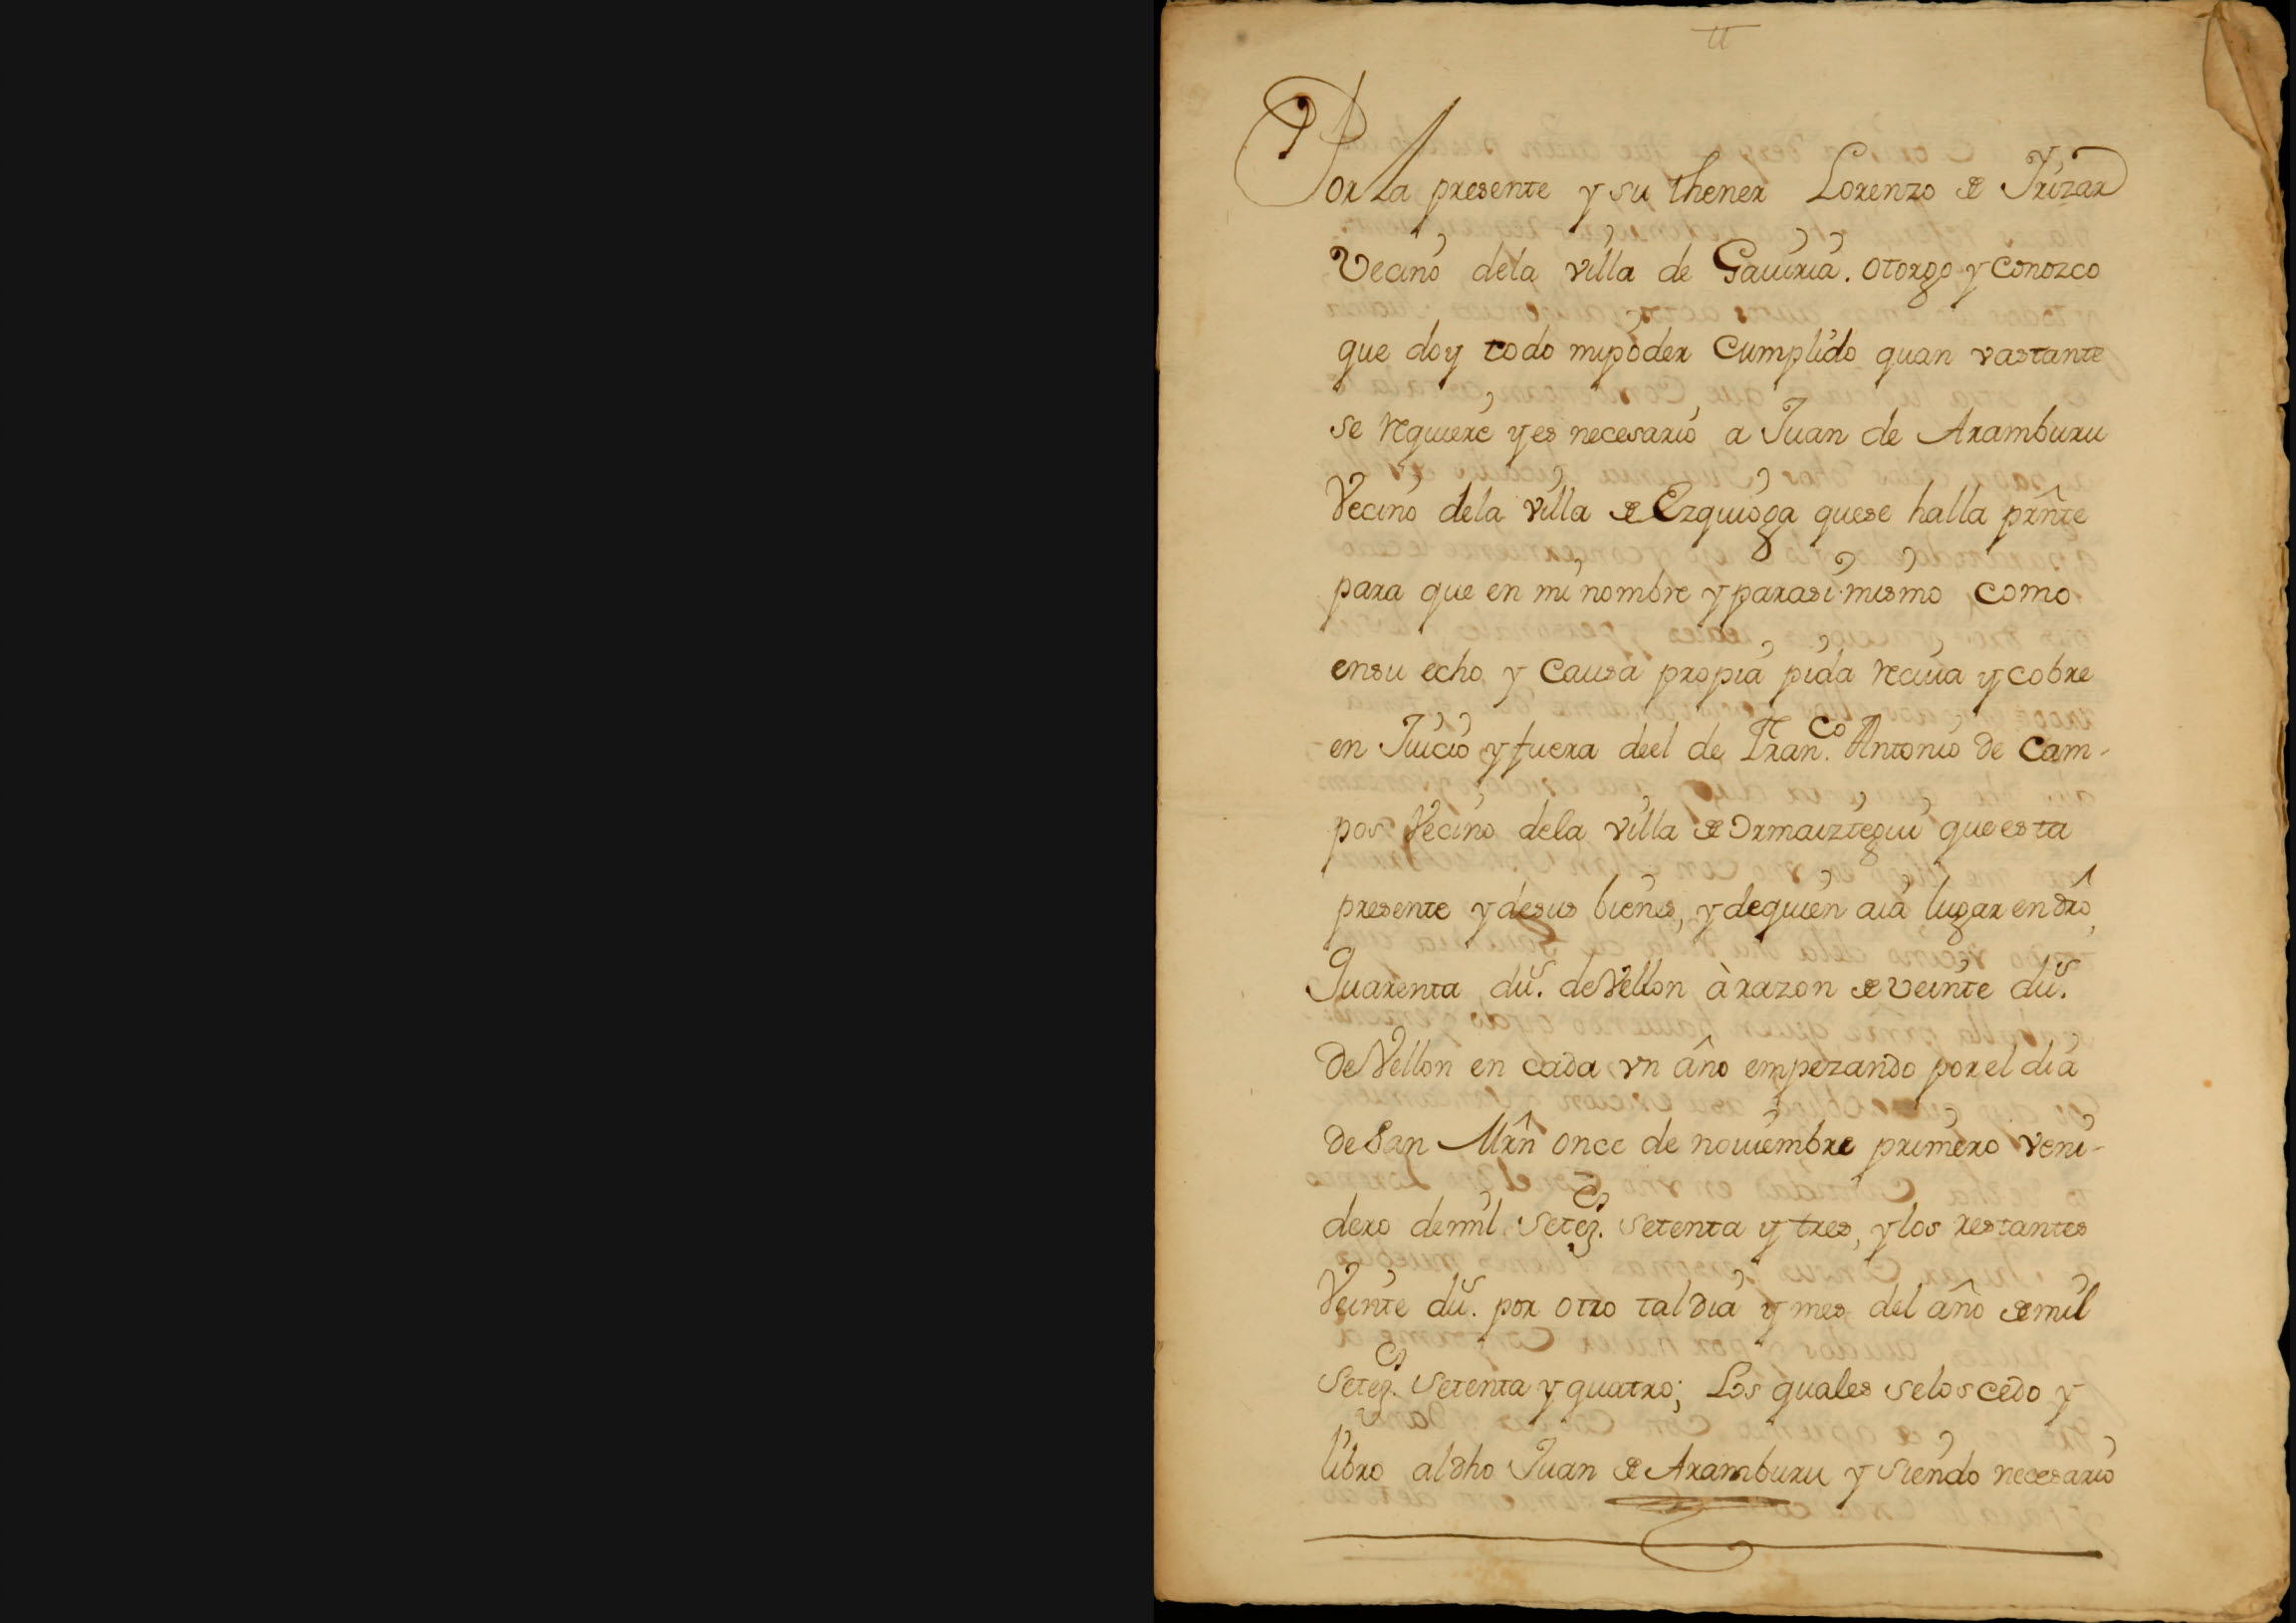 Por la presente y su thener Lorenzo de Yrizar
Vecino dela villa de Gauiria. otorgo y conozco
que doy todo mi poder Cumplido quan vastante
se requiere y es necesario a Juan de Aramburu
Vecino dela villa de Ezquioga quese halla prnte
para que en mi nombre y para si mismo como
ensu echo y Causa propia pida reciua y cobre
en Juicio y fuera deel de Fran.co Antonio de Cam-
pos Vecino dela villa de Ormaiztegui que esta
presente y desus bienes, y dequien aia lugar en dro,
Quarenta dus. de Vellon à razon de veinte dus.
de Vellon en cada vn año empezando por el dia
de San Mrn once de nouiembre primero veni-
dero demil setez.s setenta y tres, y los restantes
Veinte dus. por otro tal dia y mes del año de mil
setez.s setenta y quatro; Los quales selos cedo y
libro al dho Juan de Aramburu y siendo necesario